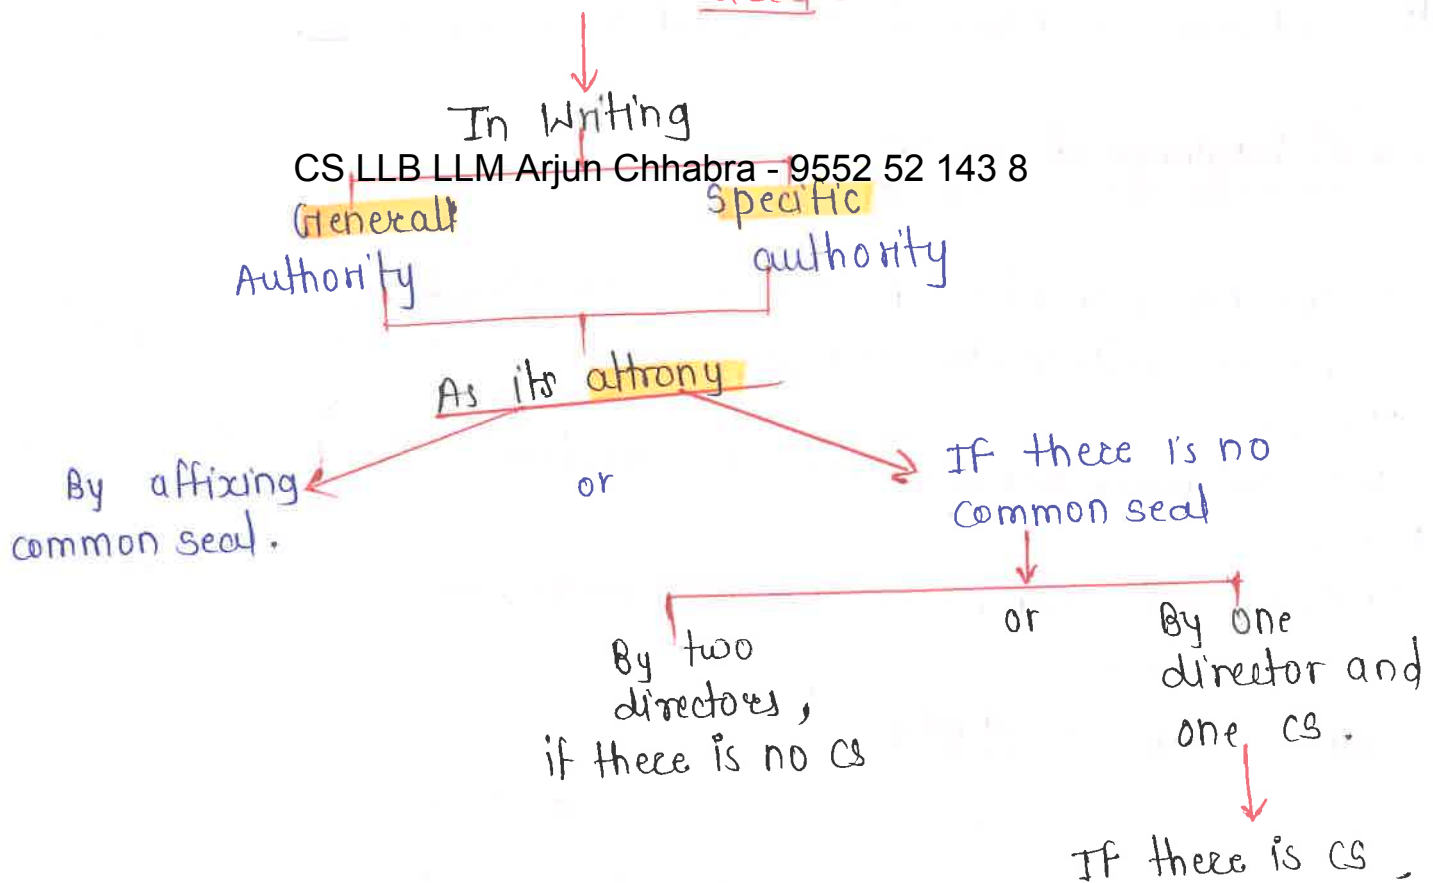 In Writing
CS LLB LLM Arjun Chhabra - 9552 52 143 8
Generall
Authority
Specific
authority
As its attrony
By affixing
common seal.
or
If there is no
common seal
By two
directors,
if there is no CS
or
By one
director and
one CS.
If there is CS.